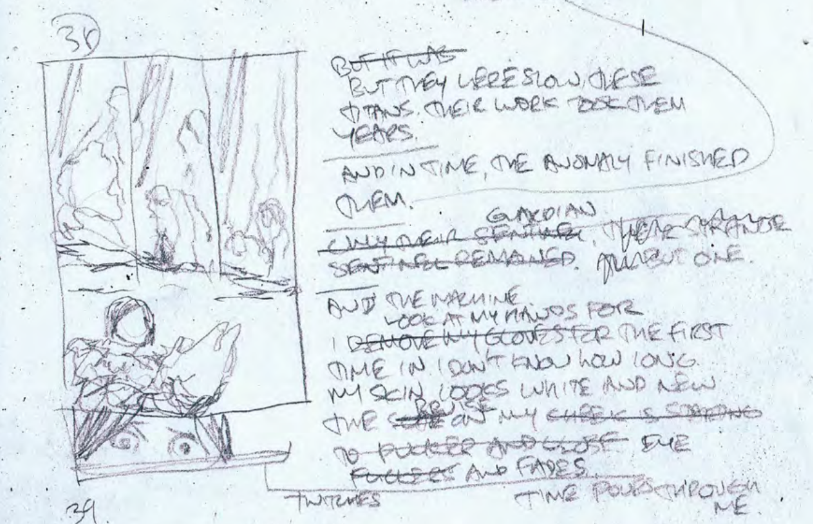 38
BUT IT WAS
BUT THEY WERE SLOW, THESE
TITANS. THEIR WORK TOOK THEM
YEARS.
AND IN TIME, THE ANOMALY FINISHED
THEM.
GUARDIAN
ONLY THEIR SENTINEL, THEIR STRANGE
SENTINEL REMAINED. ALL BUT ONE.
AND THE MACHINE.
LOOK AT MY HANDS FOR
I REMOVE MY GLOVES FOR THE FIRST
TIME IN I DON'T KNOW HOW LONG.
MY SKIN LOOKS WHITE AND NEW
BRUISE
THE ON MY CHEEK IS STARTING
TO PUCKER AND CLOSE EYE
PUCKERS AND FADES.
TWITCHES
TIME POURS THROUGH
ME.
39